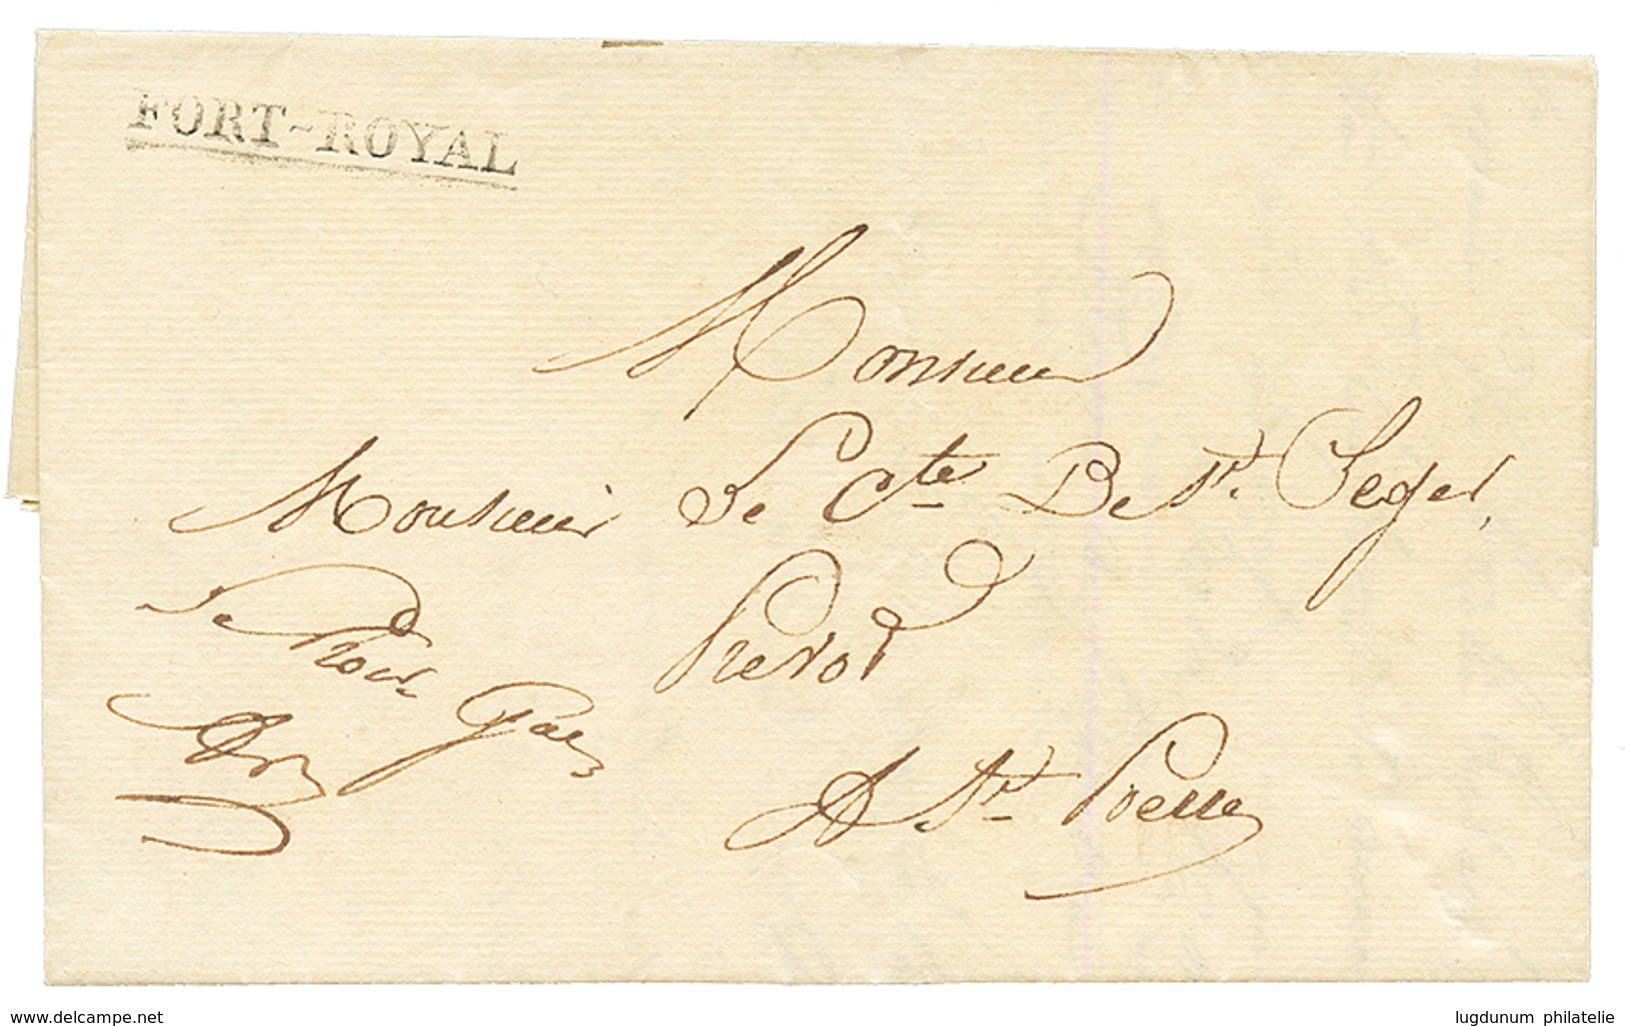 FORT-ROYAL
Monsieur
Monsieur Le Cte De St. Leger,
Prevot
A St. Pierre
delcampe.net
lugdunum philatelie